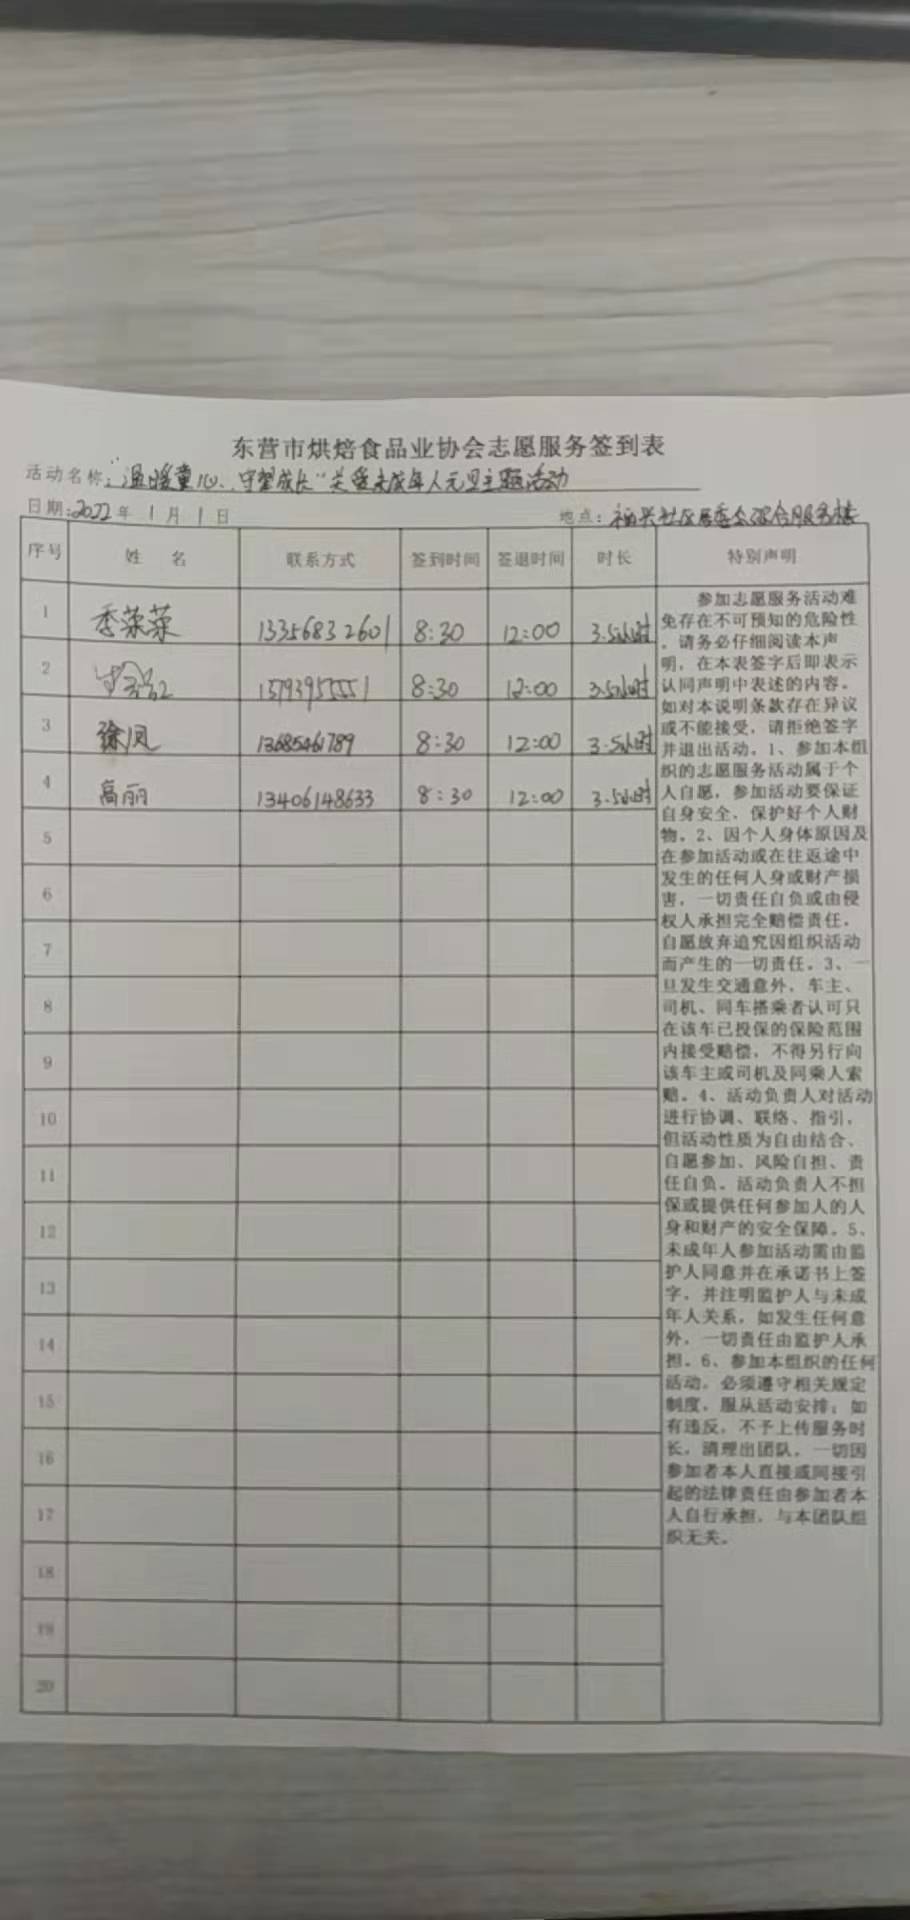 东营市烘焙食品业协会志愿服务签到表
活动名称：“温暖童心、守望成长”关爱未成年人元旦主题活动
日期：2022年1月1日 地点：福兴社区居委会综合服务楼
序号 姓名 联系方式 签到时间 签退时间 时长 特别声明
1 季荣荣 13356832601 8:30 12:00 3.5小时
2 8:30 12:00 3.5小时
3 徐凤 13685461789 8:30 12:00 3.5小时
4 高丽 13406148633 8:30 12:00 3.5小时
5
6
7
8
9
10
11
12
13
14
15
16
17
18
19
20
参加志愿服务活动难
免存在不可预知的危险性
，请务必仔细阅读本声
明，在本表签字后即表示
认同声明中表述的内容。
如对本说明条款存在异议
或不能接受，请拒绝签字
并退出活动。1、参加本组
织的志愿服务活动属于个
人自愿，参加活动要保证
自身安全、保护好个人财
物。2、因个人身体原因及
在参加活动或在往返途中
发生的任何人身或财产损
害，一切责任自负或由侵
权人承担完全赔偿责任，
自愿放弃追究因组织活动
而产生的一切责任。3、一
旦发生交通意外，车主、
司机、同车搭乘者认可只
在该车已投保的保险范围
内接受赔偿，不得另行向
该车主或司机及同乘人索
赔。4、活动负责人对活动
进行协调、联络、指引，
但活动性质为自由结合、
自愿参加、风险自担、责
任自负。活动负责人不担
保或提供任何参加人的人
身和财产的安全保障。5、
未成年人参加活动需由监
护人同意并在承诺书上签
字，并注明监护人与未成
年人关系，如发生任何意
外，一切责任由监护人承
担。6、参加本组织的任何
活动，必须遵守相关规定
制度，服从活动安排；如
有违反，不予上传服务时
长，清理出团队，一切因
参加者本人直接或间接引
起的法律责任由参加者本
人自行承担，与本团队组
织无关。